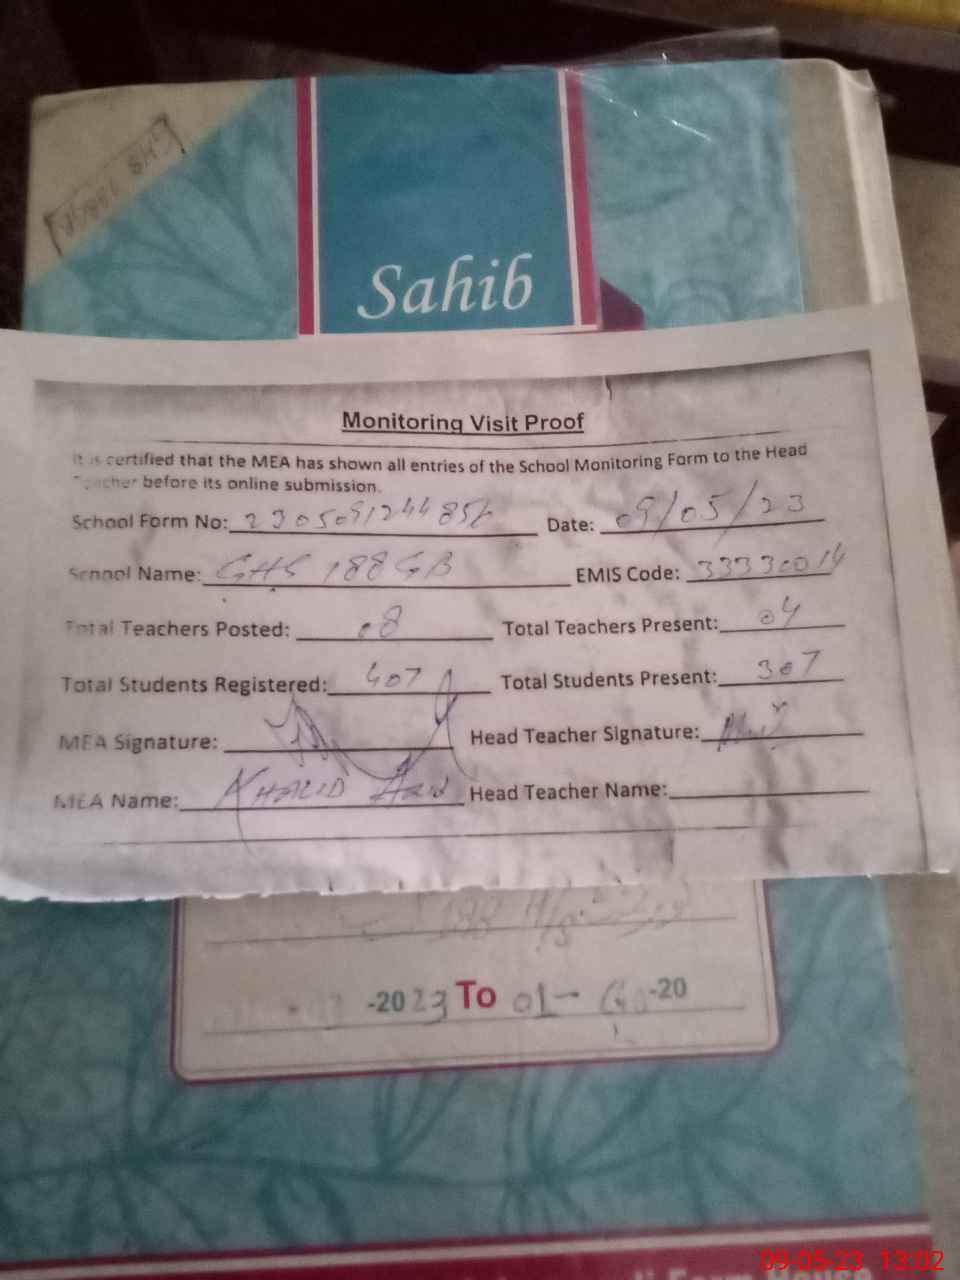 Sahib
Monitoring Visit Proof
It is certified that the MEA has shown all entries of the School Monitoring Form to the Head
Teacher before its online submission.
School Form No: Date: 09/05/23
School Name: GHS 188 GB EMIS Code: 33330014
Total Teachers Posted: 08 Total Teachers Present: 04
Total Students Registered: 407 Total Students Present: 307
MEA Signature: Head Teacher Signature:
MEA Name: KHALID Head Teacher Name:
188
-2023 To 01- -20
09-05-23 13:02